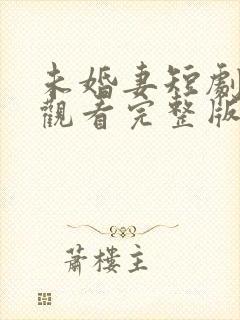 未婚妻短劇
觀看完整版
蕭樓主